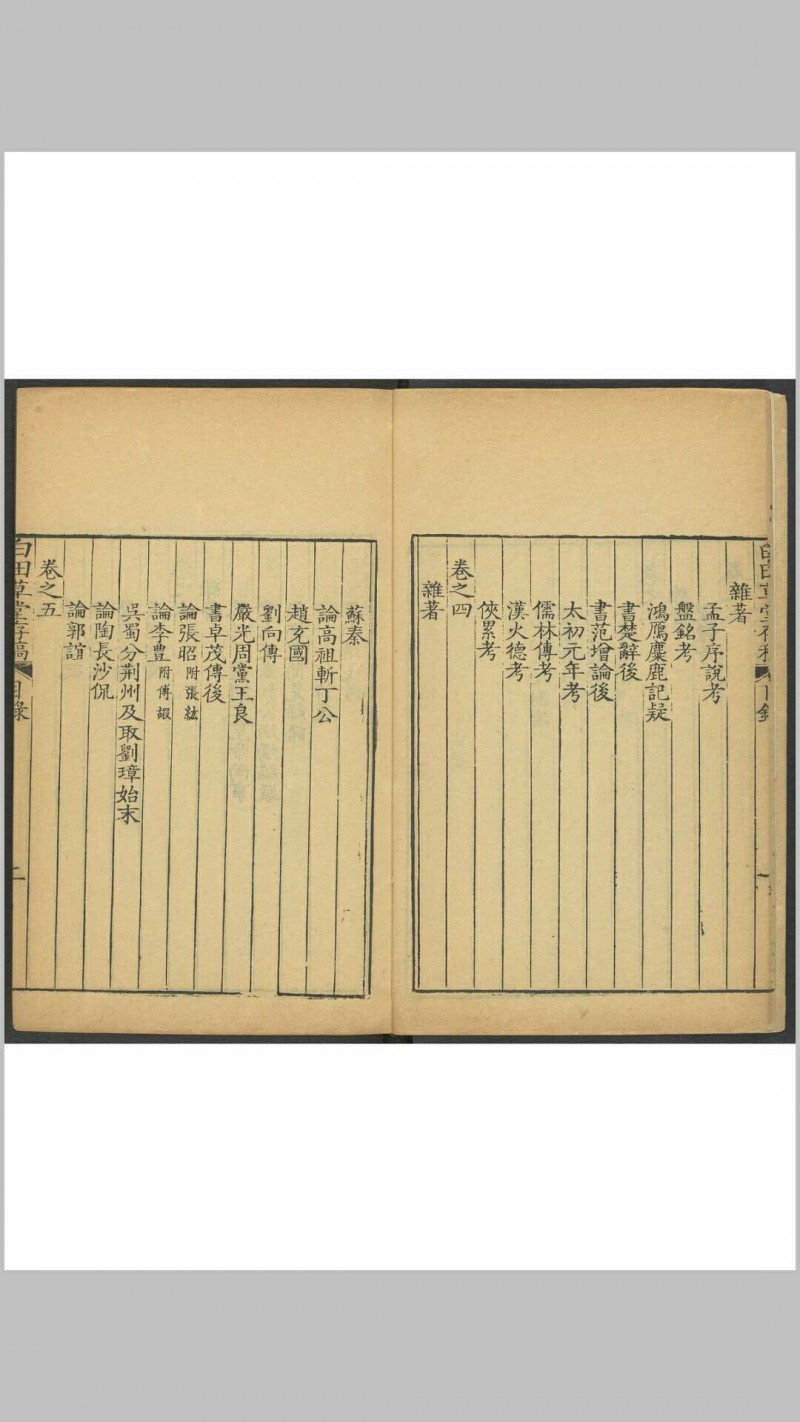 雜著
孟子序說考
盤銘考
鴻鴈麋鹿記疑
書楚辭後
書范增論後
太初元年考
儒林傳考
漢火德考
俠累考
卷之四
雜著
蘇秦
論高祖斬丁公
趙充國
劉向傳
嚴光周黨王良
書卓茂傳後
論張昭附張紘
論李豐附傅嘏
吳蜀分荆州及取劉璋始末
論陶長沙侃
論郭誼
卷之五
白田草堂存稿 目錄 二